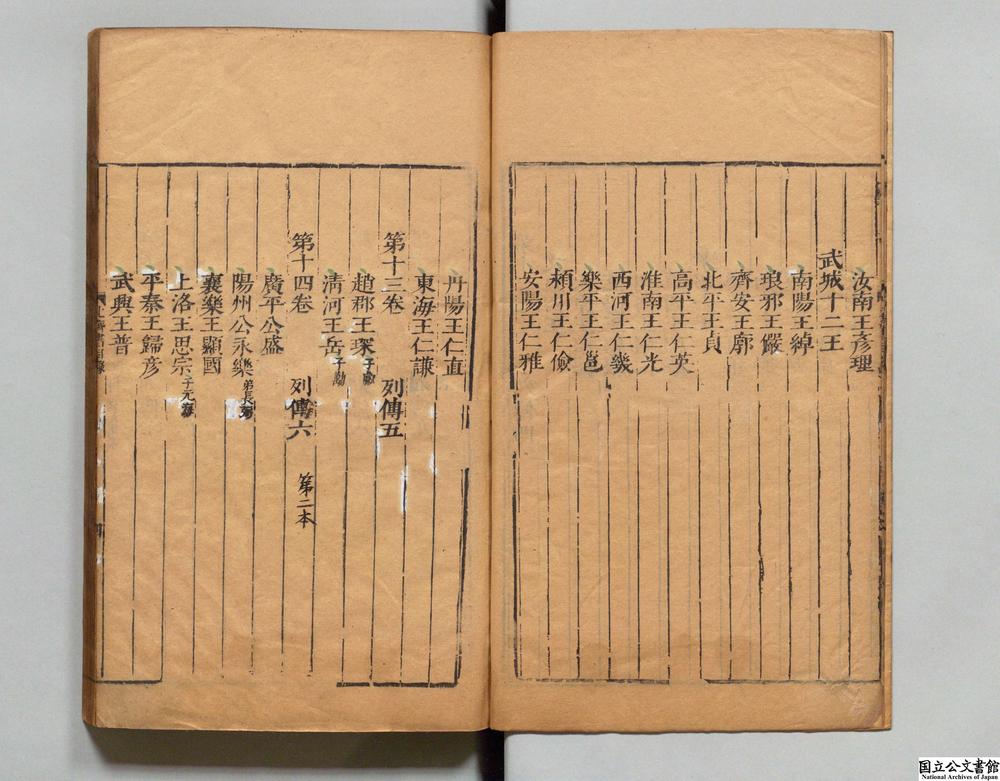 汝南王彥理
武城十二王
南陽王綽
琅邪王儼
齊安王廓
北平王貞
高平王仁英
淮南王仁光
西河王仁幾
樂平王仁邕
潁川王仁儉
安陽王仁雅
丹陽王仁直
東海王仁謙
第十三卷 列傳五
趙郡王琛 子叡
清河王岳 子勱
第十四卷 列傳六 第二本
廣平公盛
陽州公永樂 弟長弼
襄樂王顯國
上洛王思宗 子元海
平秦王歸彥
武興王普
国立公文書館
National Archives of Japan